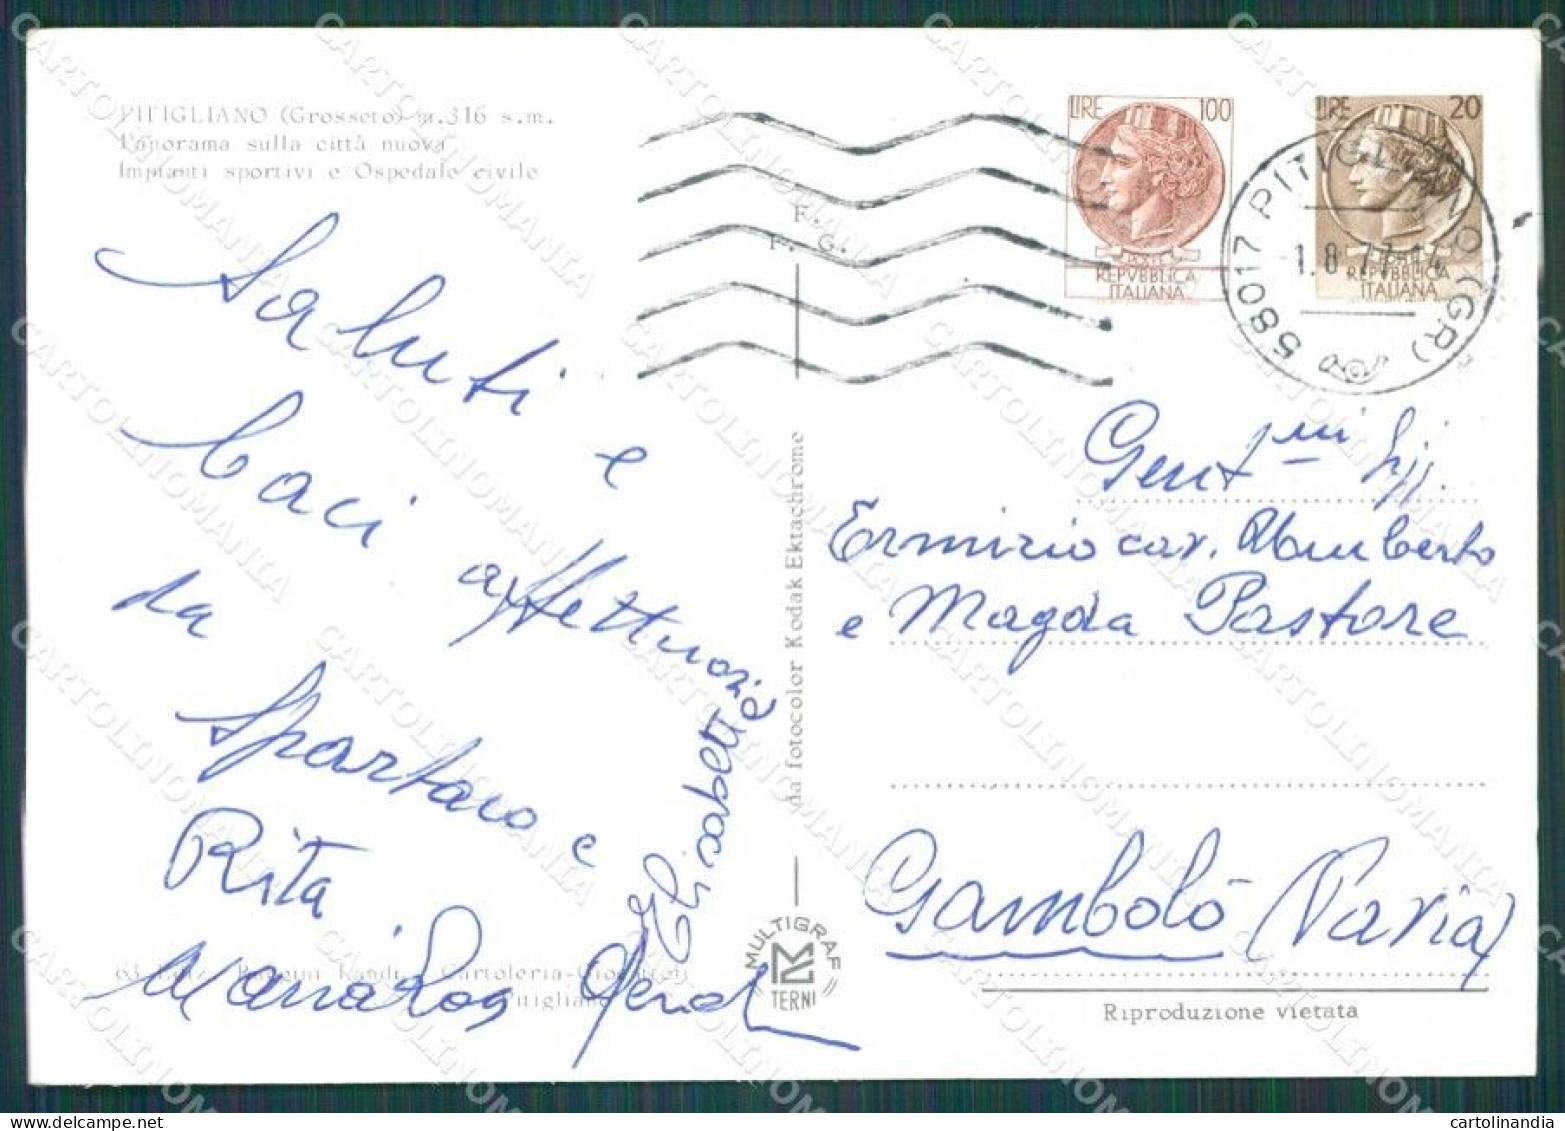 PITIGLIANO (Grosseto) m.316 s.m.
Panorama sulla città nuova
Impianti sportivi e Ospedale civile
F.
F. G.
LIRE 100
REPVBBLICA
ITALIANA
LIRE 20
REPVBBLICA
ITALIANA
58017 PITIGLIANO (GR)
-1.8.77-14
Saluti e
baci affettuosi
da
Spartaco e
Rita.
Maria Rosa
Elisabetta
da fotocolor Kodak Ektachrome
MULTIGRAF
TERNI
Gent.mi Sigg.
Ermizio cav. Umberto
e Magda Pastore
Gambolò (Pavia)
Riproduzione vietata
63 - Ediz. Kandi - Cartoleria-Giocattoli
Pitigliano
CARTOLINOMANIA
cartolinandia